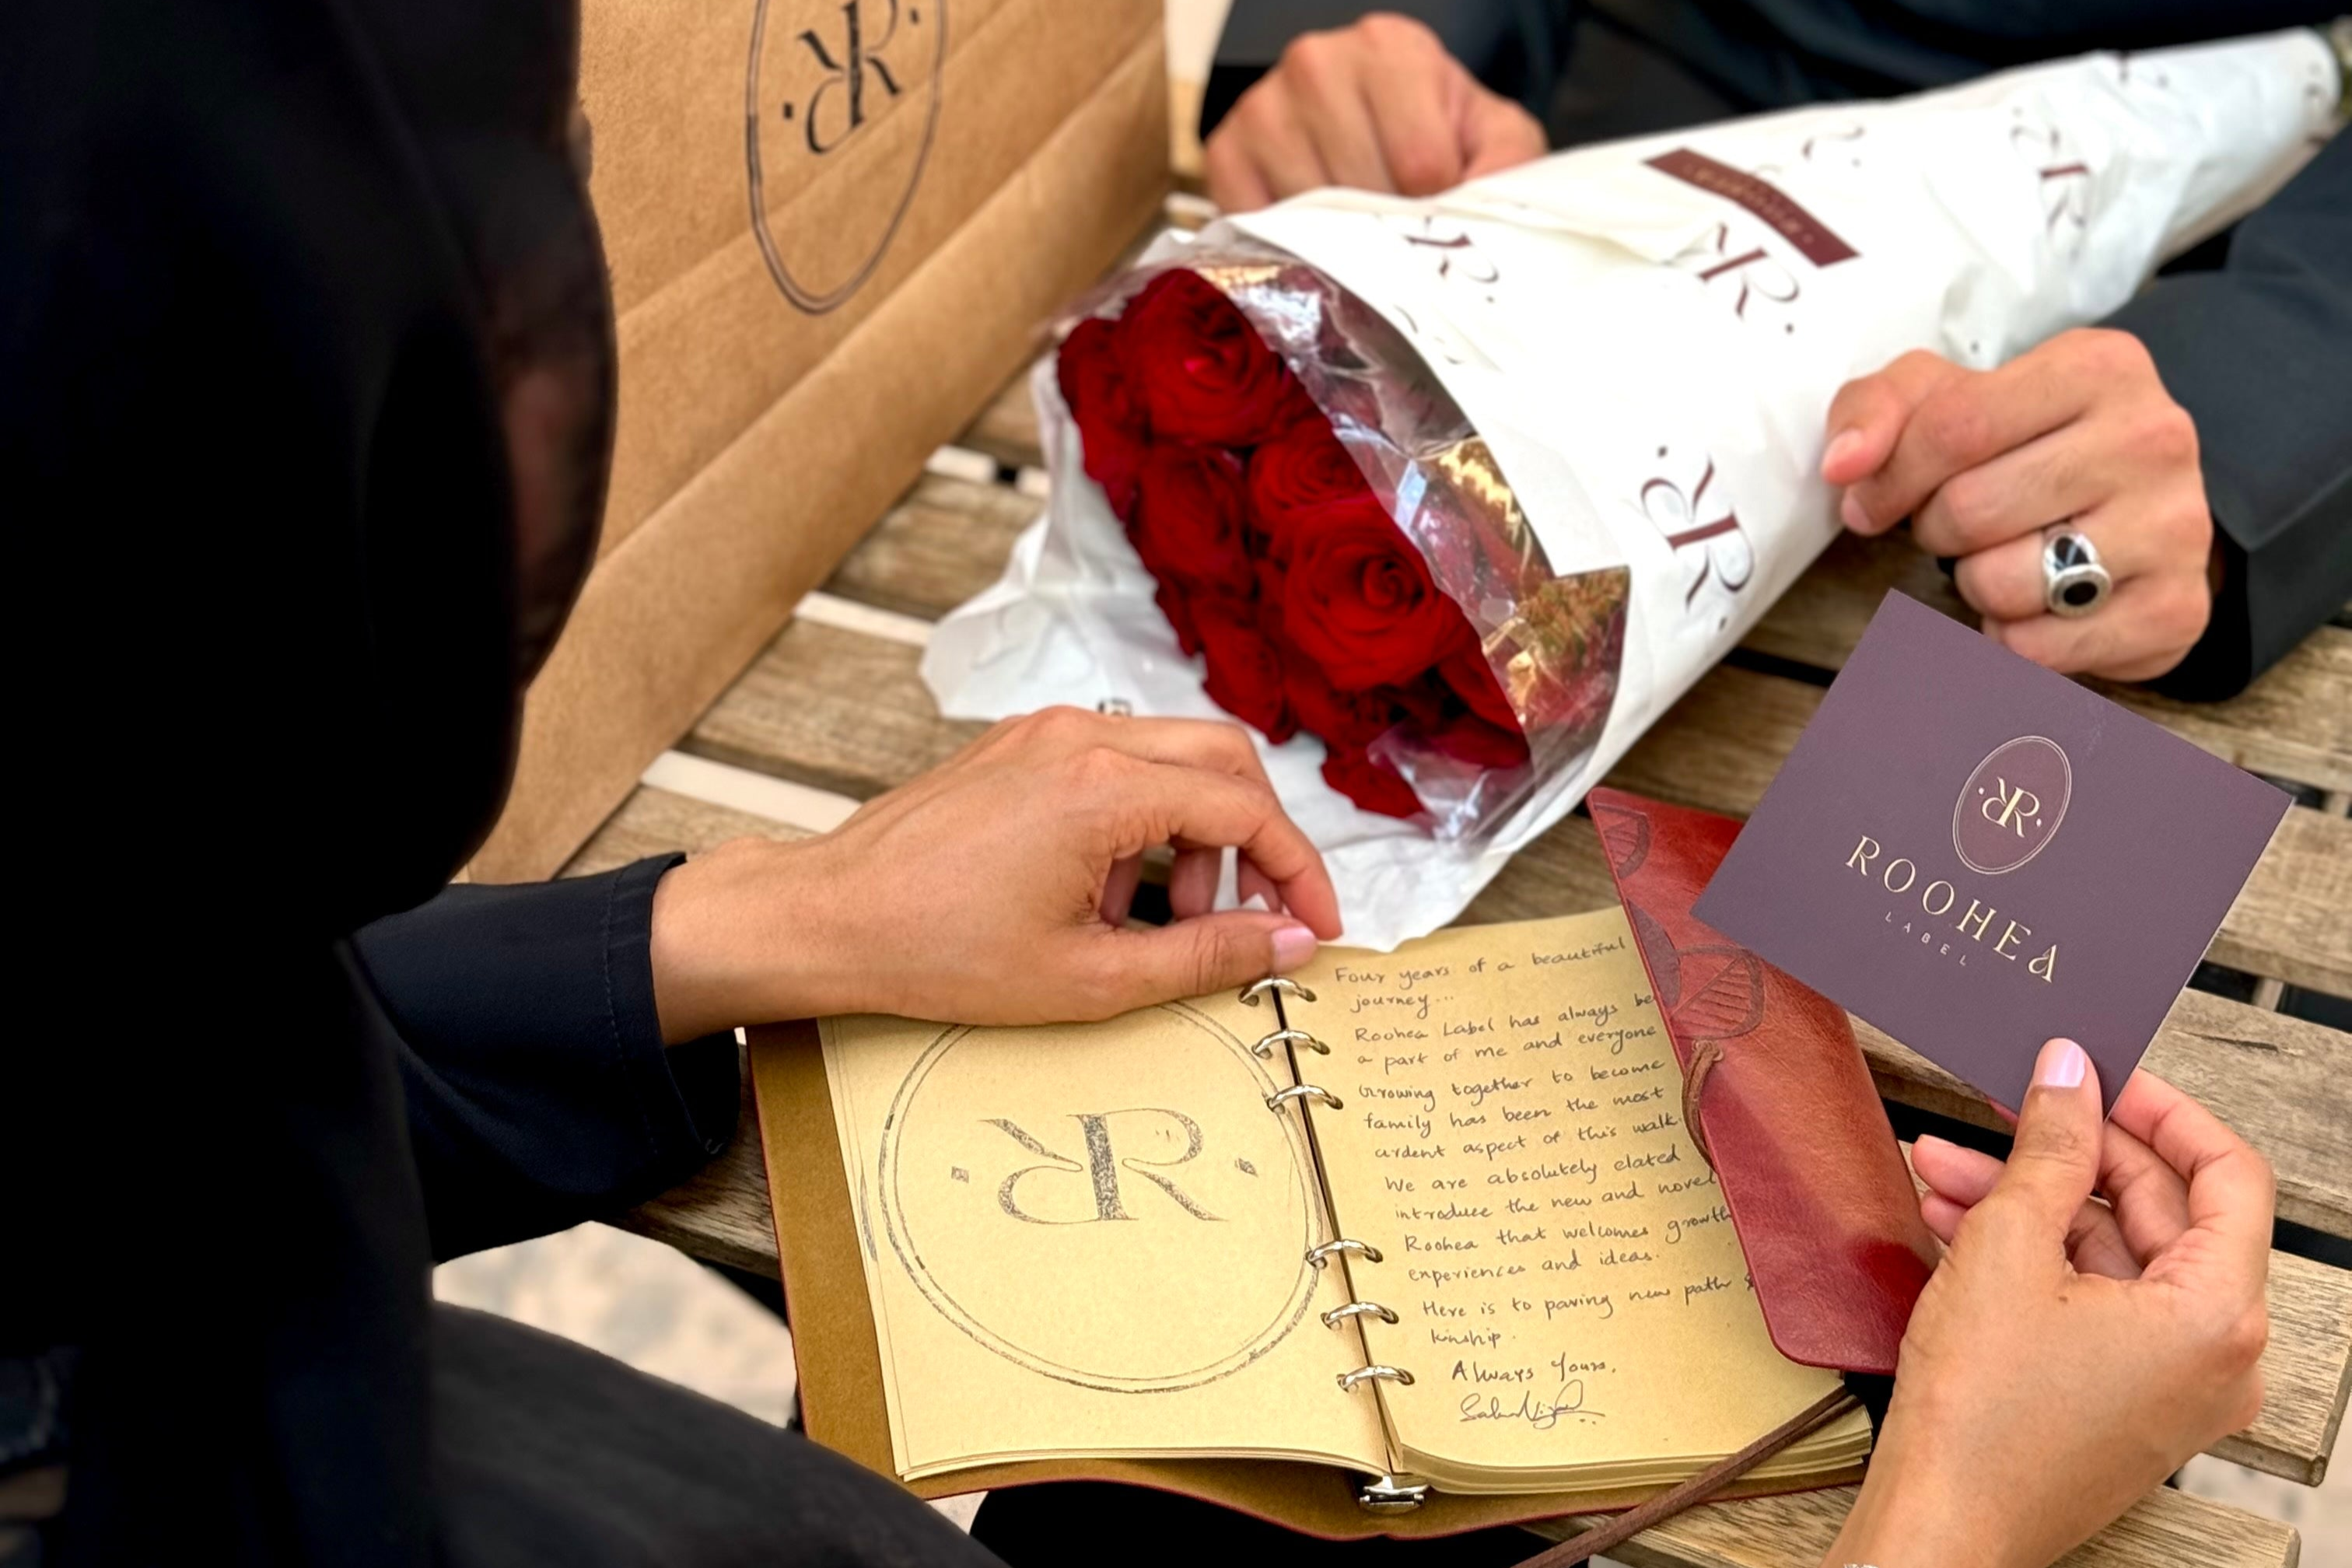 ROOHEA
LABEL
Four years of a beautiful
journey...
Roohea Label has always be
a part of me and everyone
Growing together to become
family has been the most
ardent aspect of this walk.
We are absolutely elated
introduce the new and novel
Roohea that welcomes growth
experiences and ideas.
Here is to paving new path &
kinship.
Always Yours,